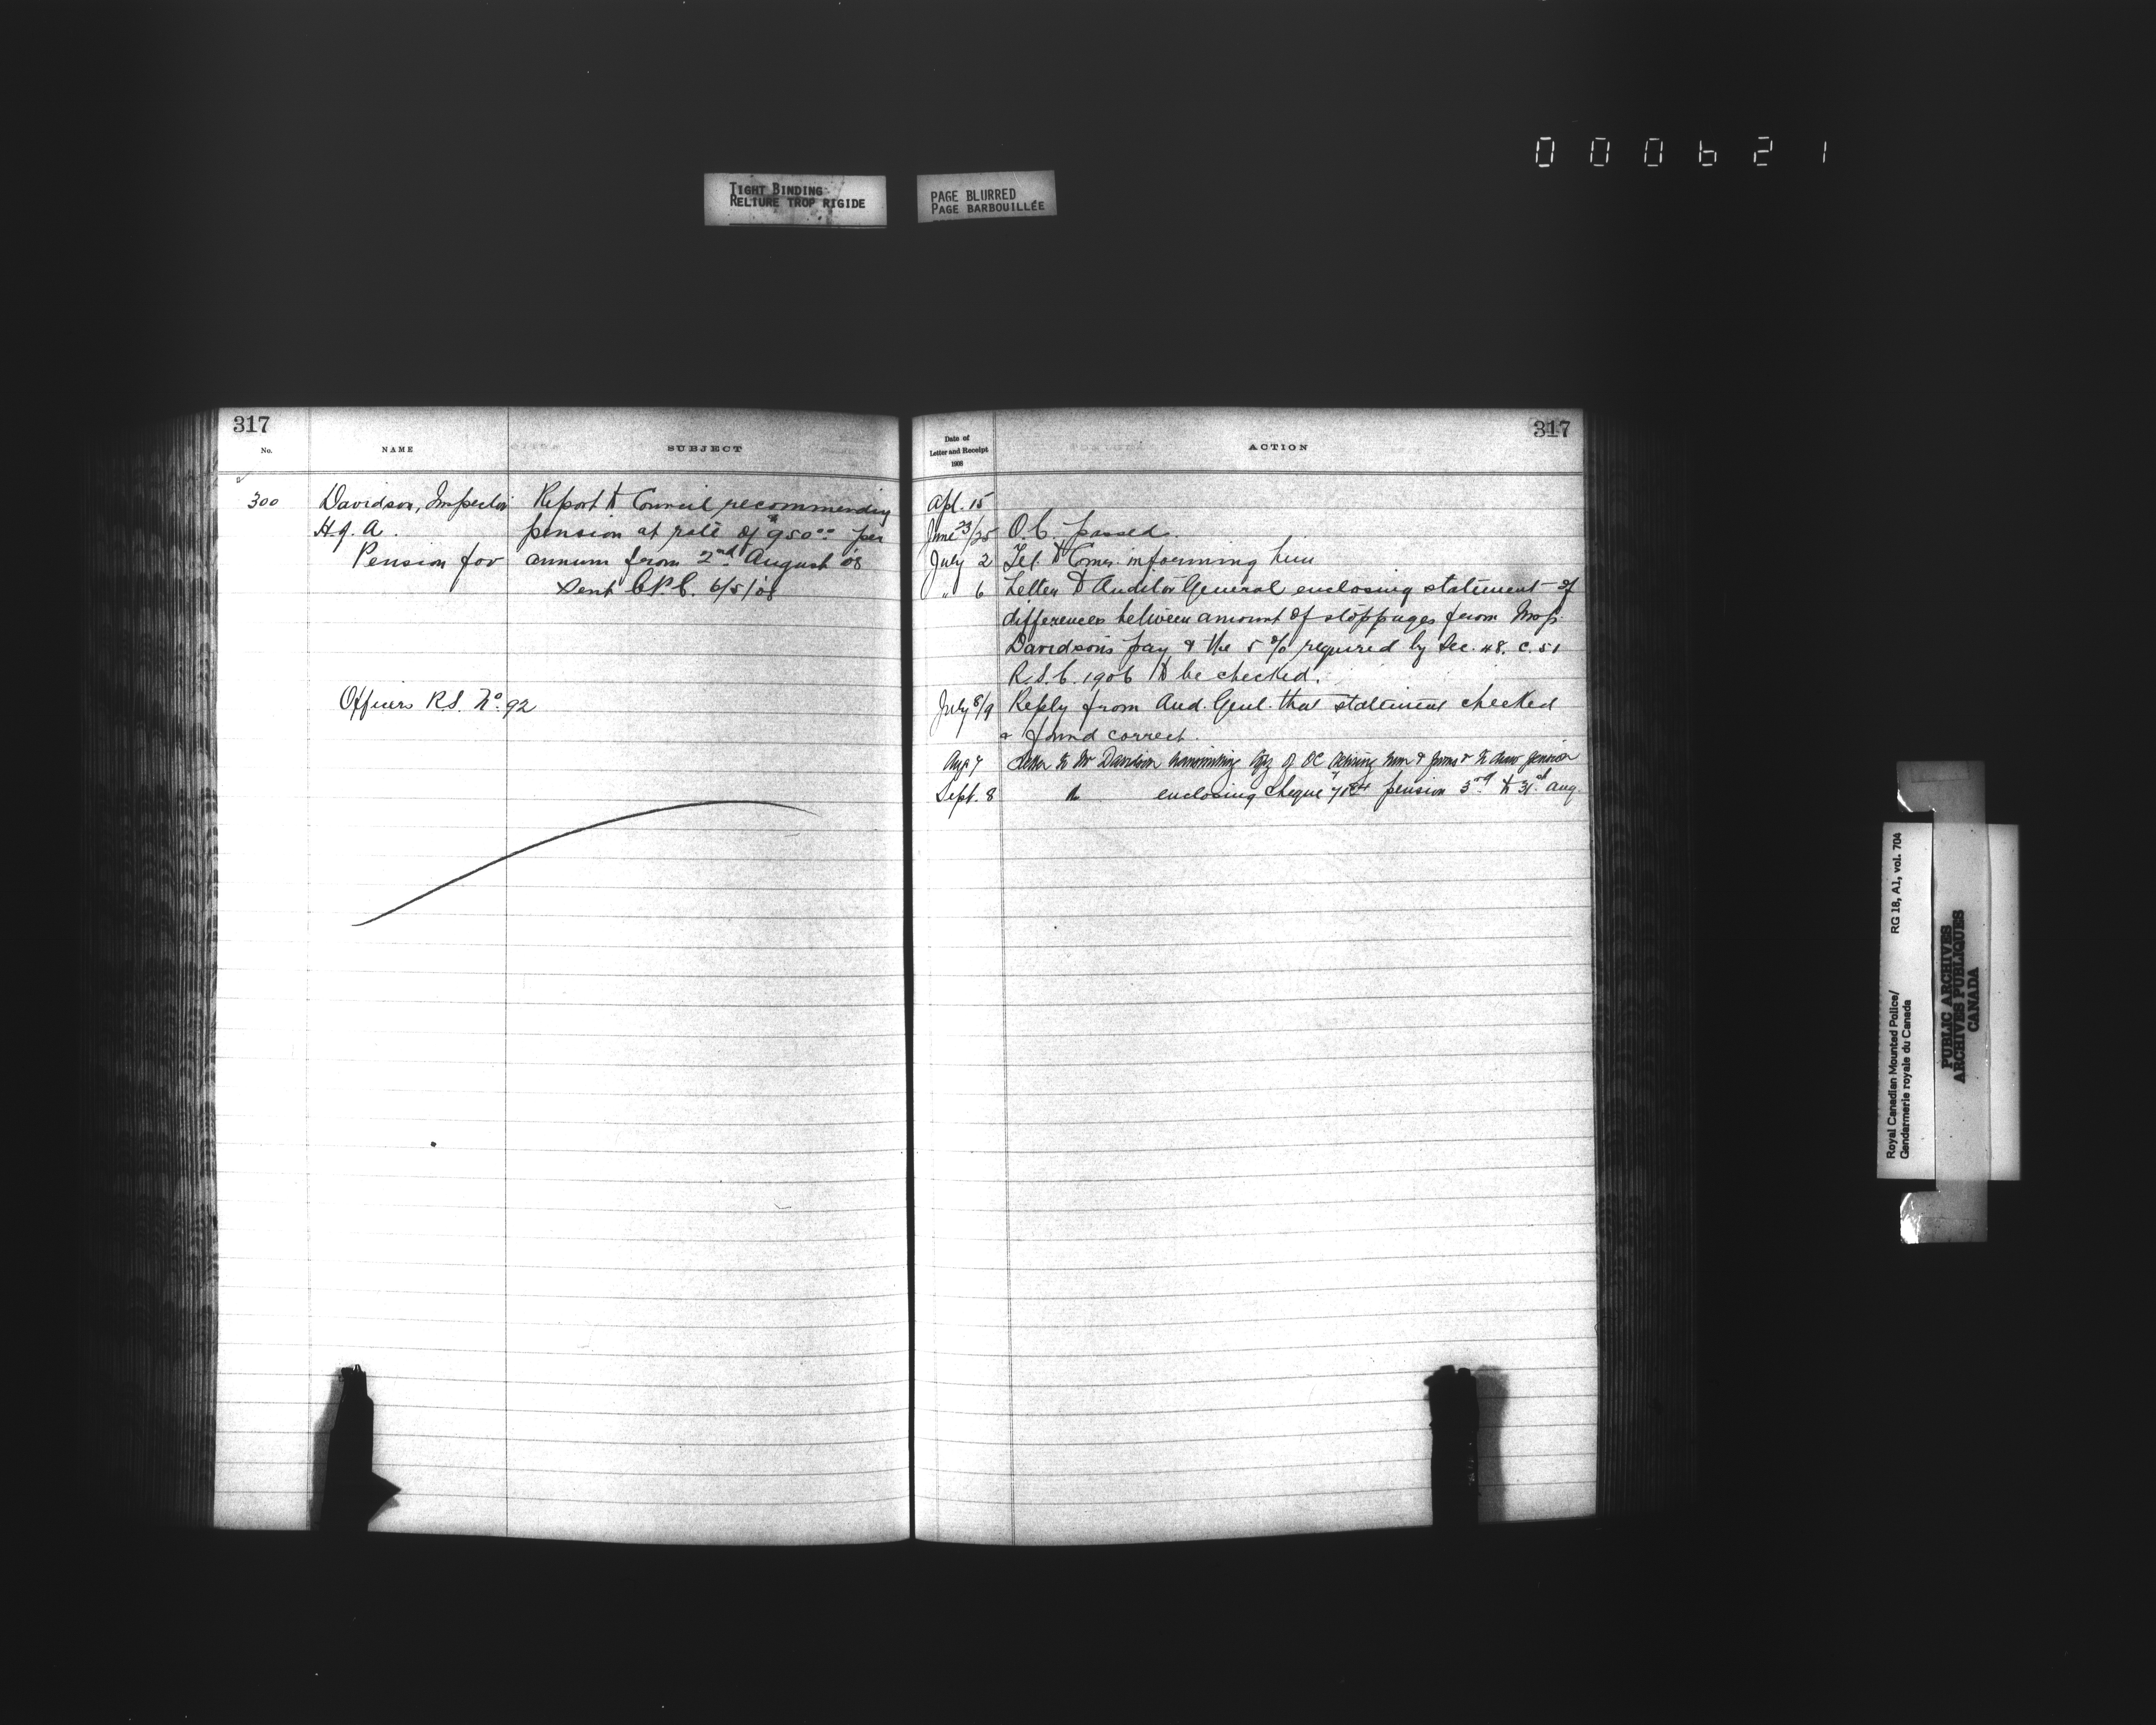 000621
TIGHT BINDING
RELIURE TROP RIGIDE
PAGE BLURRED
PAGE BARBOUILLÉE
317
No.
NAME
SUBJECT
300
Davidson, Inspector
H.J.A.
Pension for
Report to Council recommending
pension at rate of $950.00 per
annum from 2nd August '08
Sent C.P.C. 6/5/08
Officers R.S. No. 92
317
Date of
Letter and Receipt
1908
ACTION
Apl. 15
June 23/25 O.C. passed.
July 2 Tel. to Comr. informing him
" 6 Letter to Auditor General enclosing statement of
differences between amount of stoppages from Insp.
Davidson's pay & the 5% required by Sec. 48. C. 51
R.S.C. 1906 to be checked.
July 8/9 Reply from Aud. Genl. that statement checked
& found correct.
Aug 7 Letter to Mr Davidson transmitting Copy of OC retiring him & forms to draw pension
Sept. 8 enclosing cheque pension 3rd to 31st Aug.
Royal Canadian Mounted Police/
Gendarmerie royale du Canada
RG 18, A1, vol. 704
PUBLIC ARCHIVES
ARCHIVES PUBLIQUES
CANADA